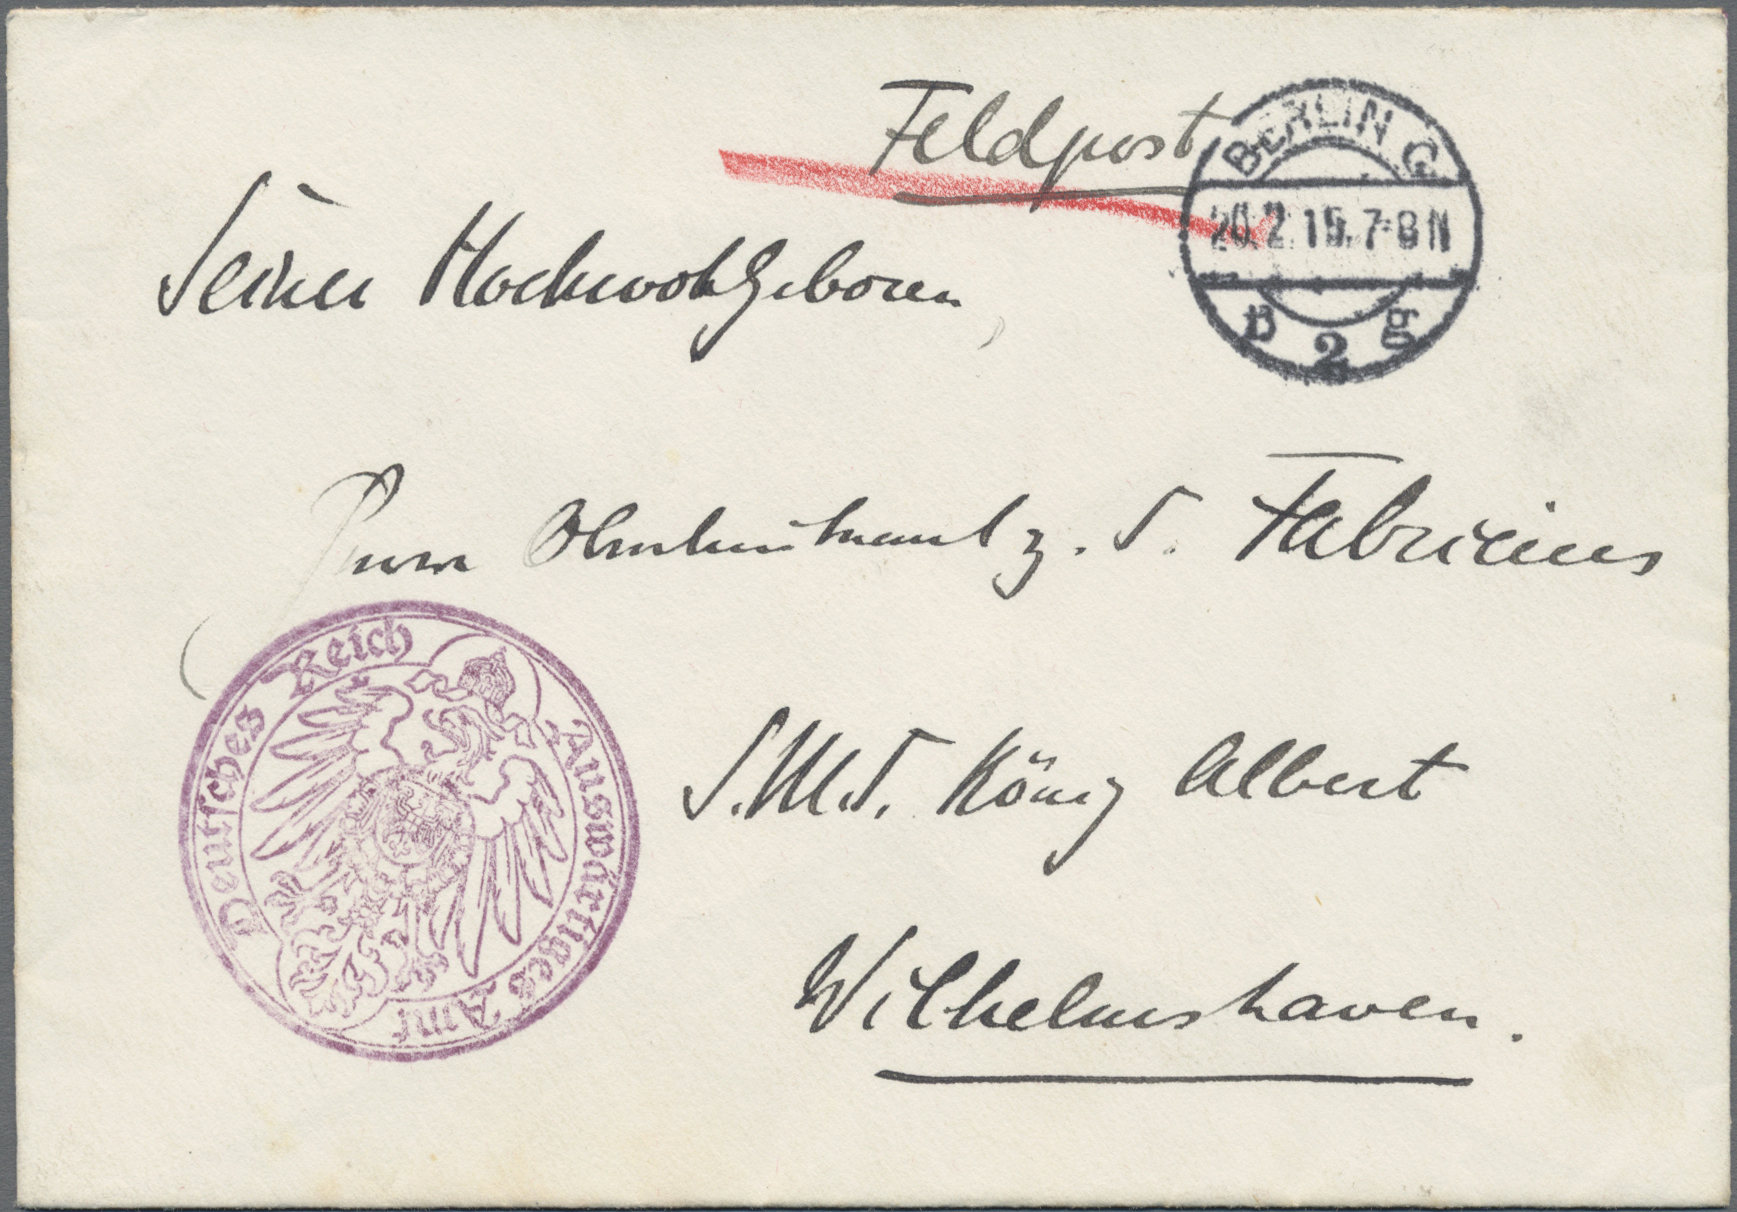 Feldpost
BERLIN C
20.2.15. 7-8 N
2 g
Seiner Hochwohlgeboren
Herrn Oberleutnant z. S. Fabricius
Deutsches Reich
Auswärtiges Amt
S.M.S. König Albert
Wilhelmshaven.